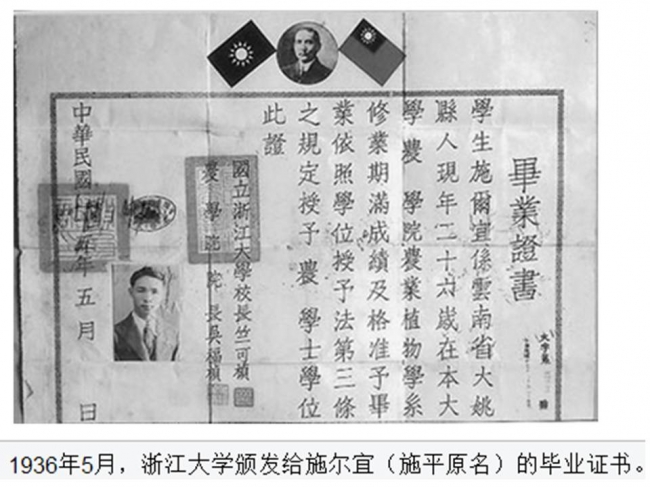 畢業證書
學生施爾宜係雲南省大姚
縣人現年二十六歲在本大
學農 學院農業植物學系
修業期滿成績及格准予畢
業依照學位授予法第三條
之規定授予農 學士學位
此證
國立浙江大學校長竺可楨
農 學 院 院 長吳福楨
中華民國 年五月 日
大字第 號
1936年5月，浙江大学颁发给施尔宜（施平原名）的毕业证书。